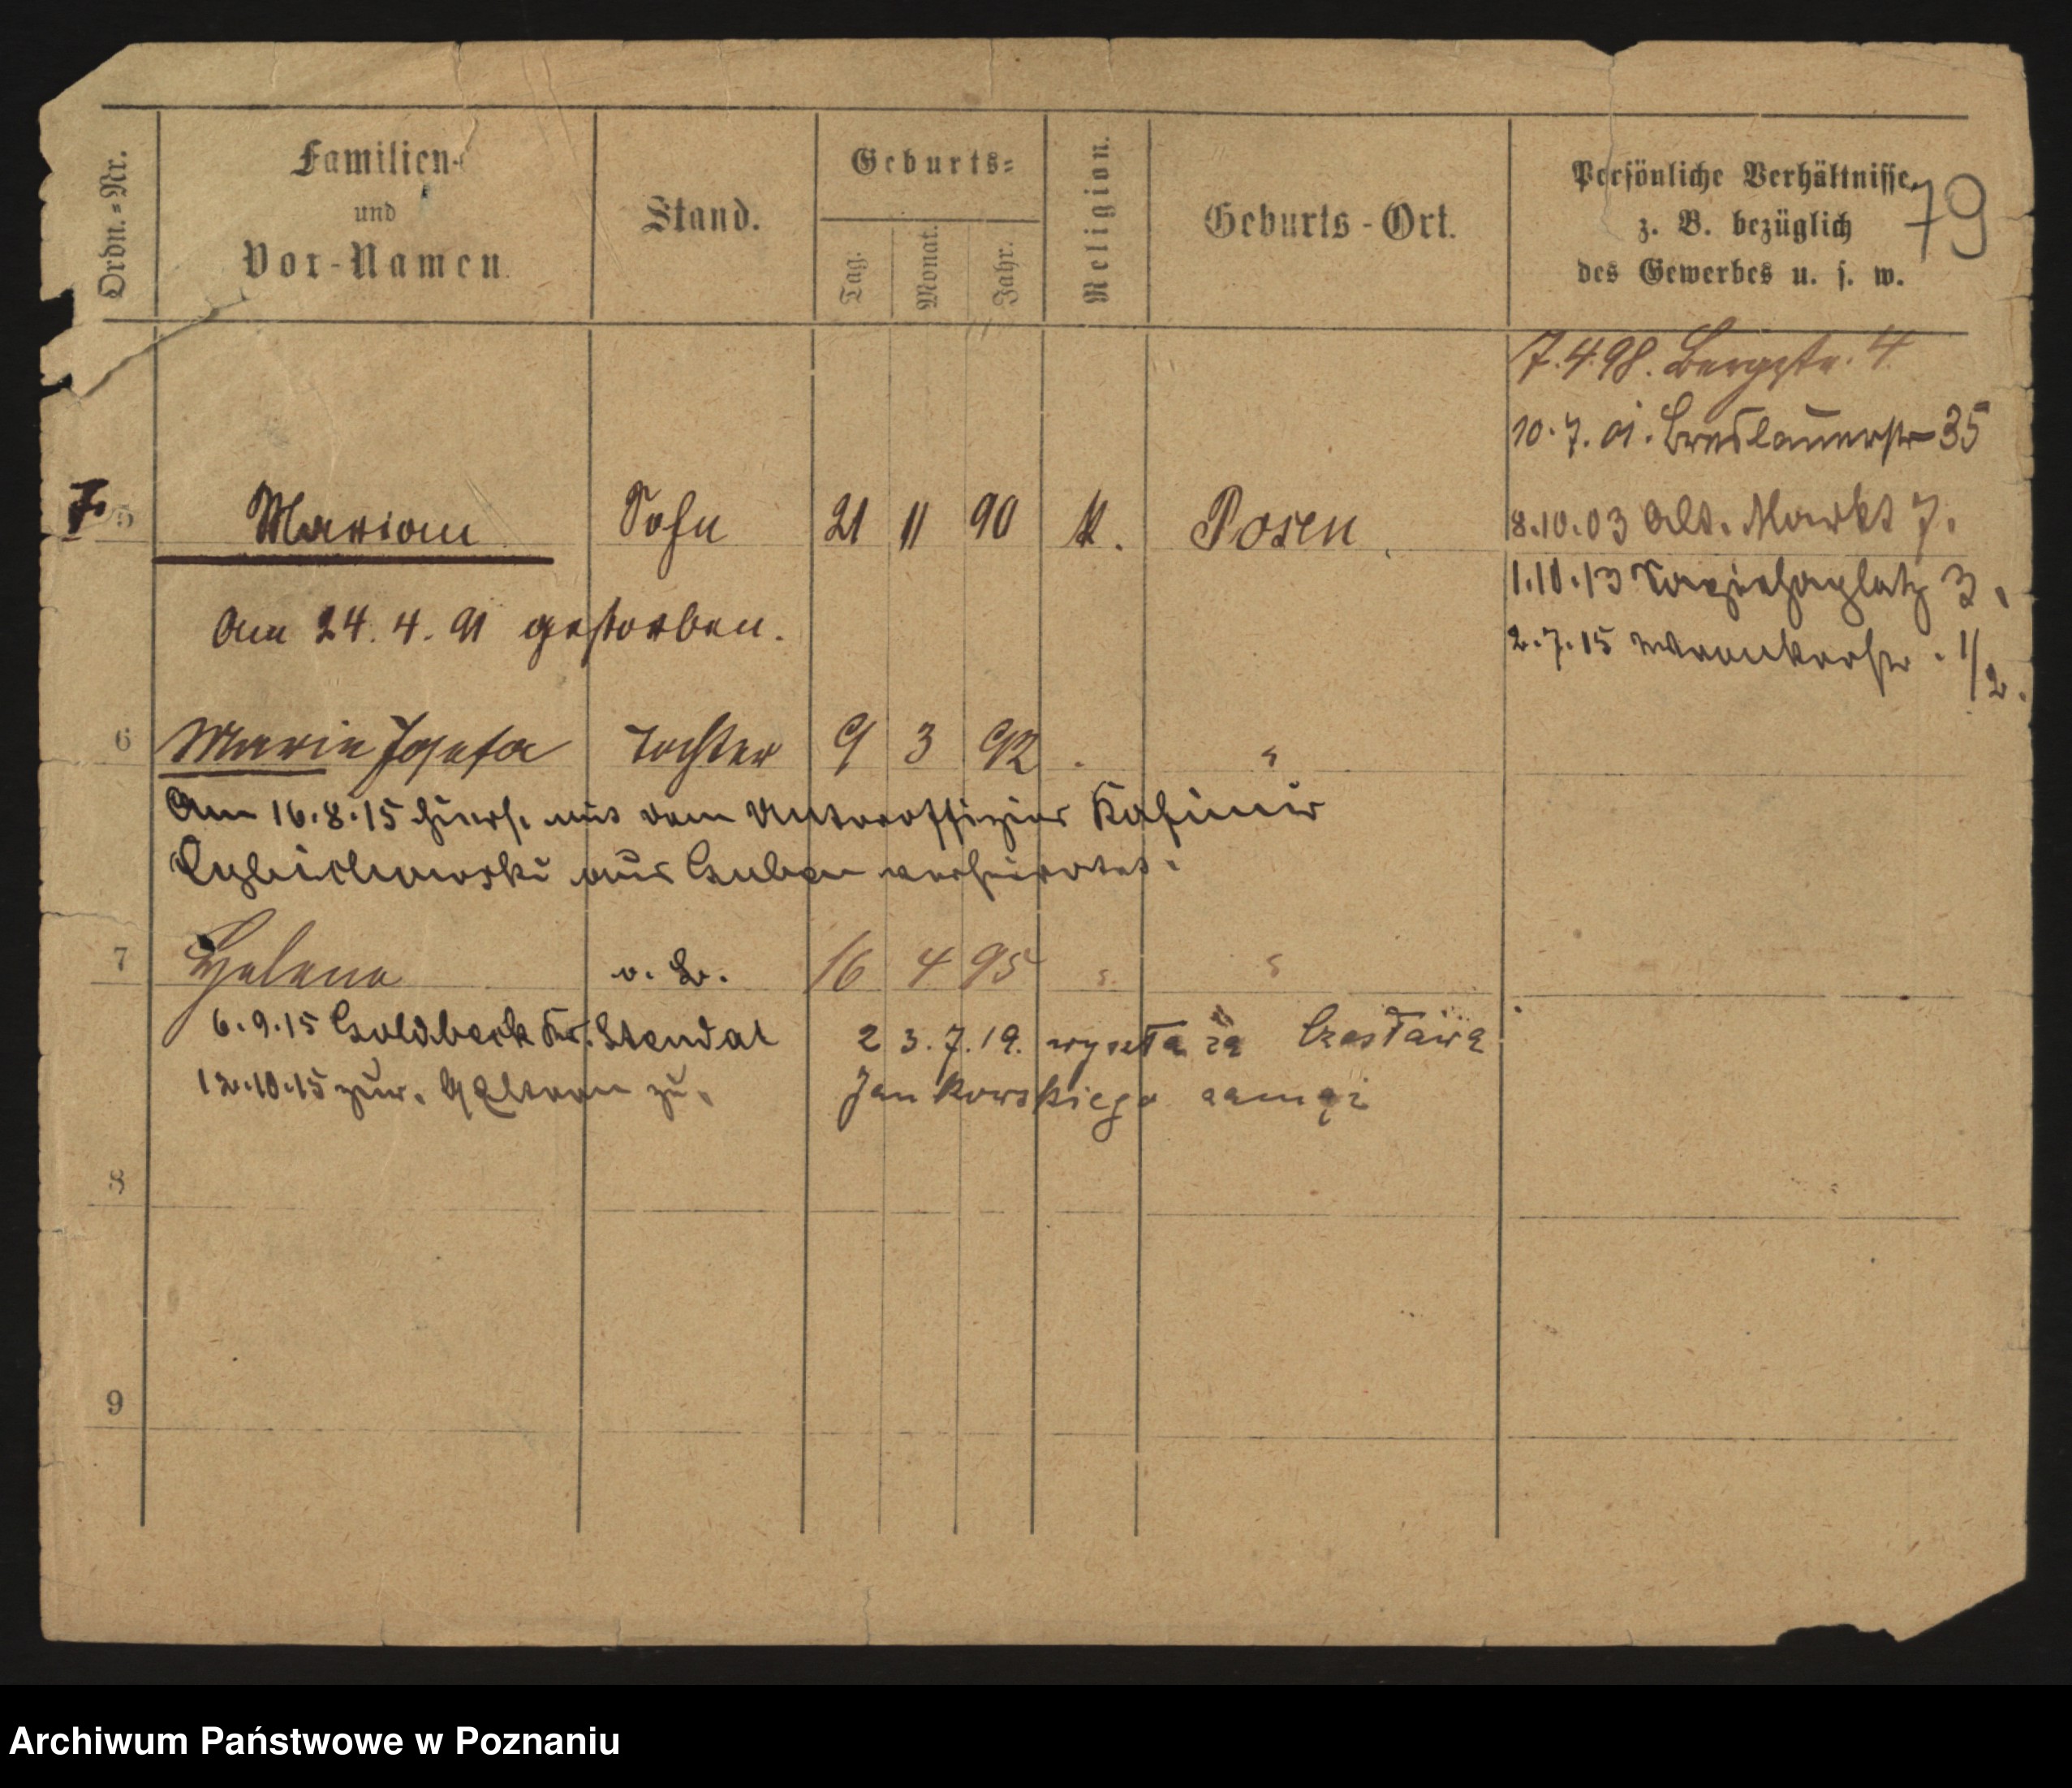 Ordn.-Nr.
Familien-
und
Vor-Namen.
Stand.
Geburts-
Tag.
Monat.
Jahr.
Religion.
Geburts-Ort.
Persönliche Verhältnisse,
z. B. bezüglich
des Gewerbes u. s. w.
79
7.4.98. Bergstr. 4
10.7.01. Breslauerstr 35
5 Marian Sohn 21 11 90 k. Posen
8.10.03 Alt. Markt 7.
1.10.13 Sapiehaplatz 3.
Am 24.4.91 gestorben.
2.7.15 Wronkerstr. 1/2.
6 Marie Josefa Tochter 9 3 92 "
Am 16.8.15 hiers. mit dem Unteroffizier Kasimir
aus Guben verheiratet.
7 Helene v. L. 16 4 95 " "
6.9.15 Goldbeck Kr. Stendal
23.7.19. wyszła za Czesława
12.10.15 zur. Eltern zu.
Jankowskiego zamąż
8
9
Archiwum Państwowe w Poznaniu